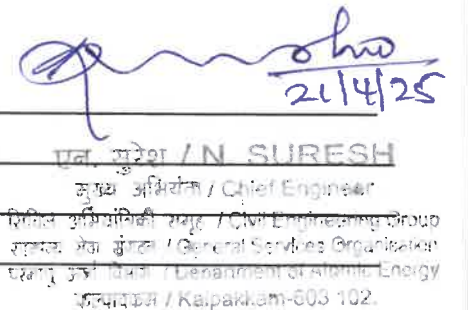 21/4/25
एन. सुरेश / N. SURESH
मुख्य अभियंता / Chief Engineer
सिविल अभियांत्रिकी समूह / Civil Engineering Group
सामान्य सेवा संगठन / General Services Organisation
परमाणु ऊर्जा विभाग / Department of Atomic Energy
कल्पाक्कम / Kalpakkam-603 102.